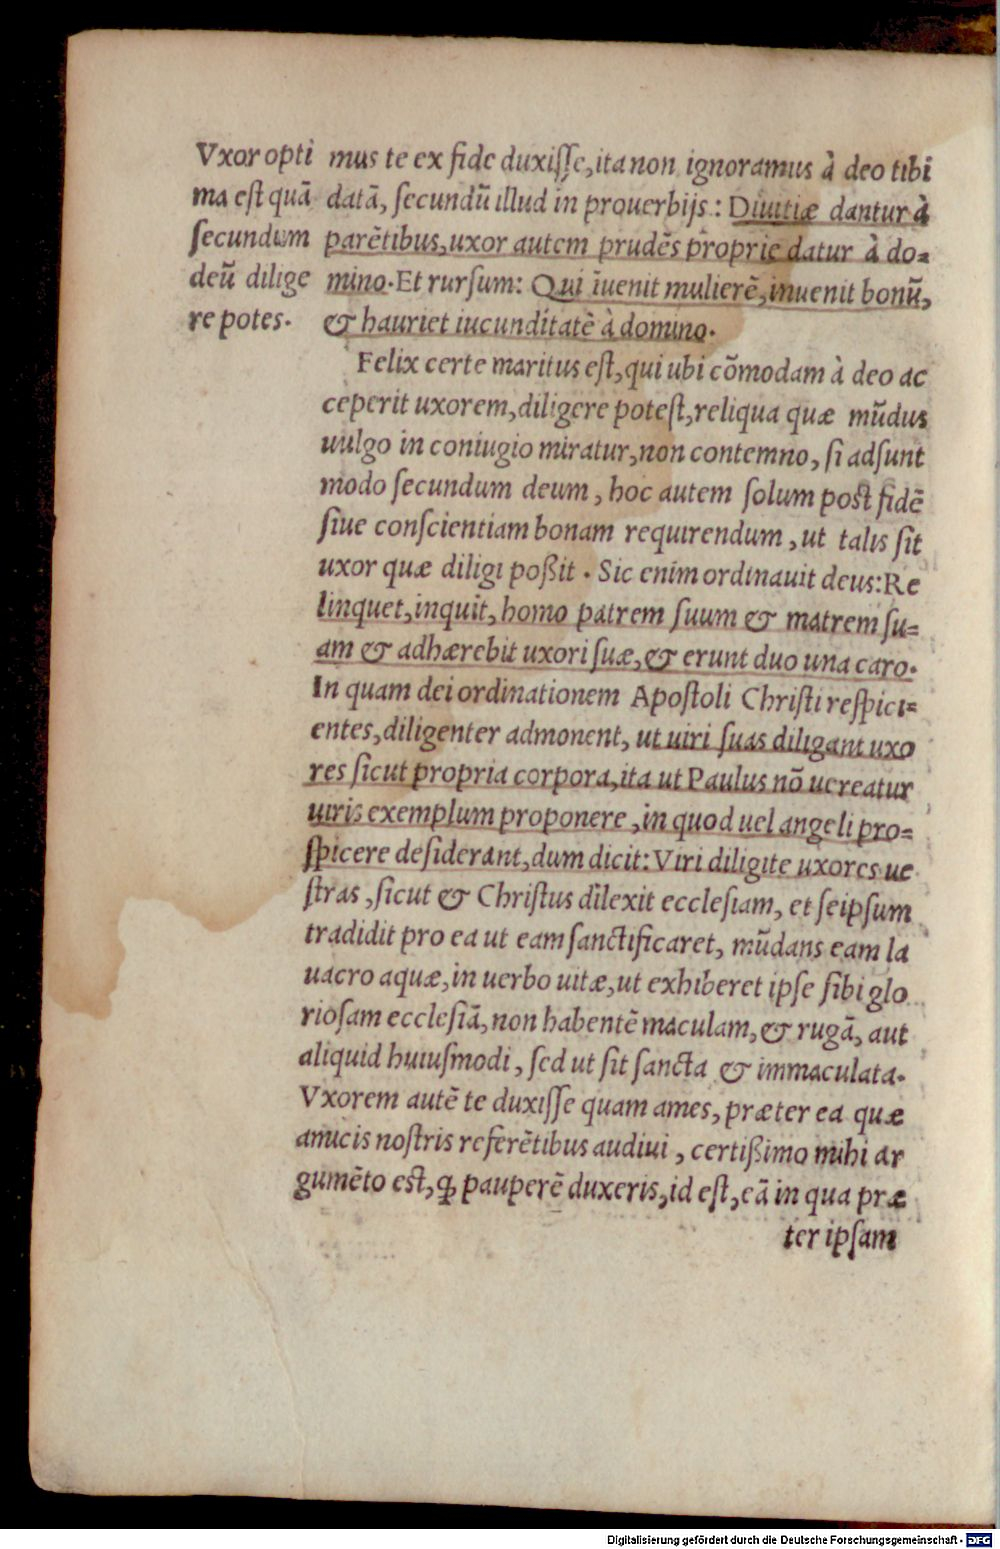 Vxor opti
ma est quā
secundum
deū dilige
re potes.
mus te ex fide duxisse, ita non ignoramus à deo tibi
datā, secundū illud in prouerbijs: Diuitiæ dantur à
parētibus, uxor autem prudēs proprie datur à do-
mino. Et rursum: Qui īuenit mulierē, inuenit bonū,
& hauriet iucunditatē à domino.
Felix certe maritus est, qui ubi cōmodam à deo ac
ceperit uxorem, diligere potest, reliqua quæ mūdus
uulgo in coniugio miratur, non contemno, si adsunt
modo secundum deum, hoc autem solum post fidē
siue conscientiam bonam requirendum, ut talis sit
uxor quæ diligi poßit. Sic enim ordinauit deus: Re
linquet, inquit, homo patrem suum & matrem su-
am & adhærebit uxori suæ, & erunt duo una caro.
In quam dei ordinationem Apostoli Christi respici-
entes, diligenter admonent, ut uiri suas diligant uxo
res sicut propria corpora, ita ut Paulus nō uereatur
uiris exemplum proponere, in quod uel angeli pro-
spicere desiderant, dum dicit: Viri diligite uxores ue
stras, sicut & Christus dilexit ecclesiam, et seipsum
tradidit pro ea ut eam sanctificaret, mūdans eam la
uacro aquæ, in uerbo uitæ, ut exhiberet ipse sibi glo
riosam ecclesiā, non habentē maculam, & rugā, aut
aliquid huiusmodi, sed ut sit sancta & immaculata.
Vxorem autē te duxisse quam ames, præter ea quæ
amicis nostris referētibus audiui, certißimo mihi ar
gumēto est, ꝙ pauperē duxeris, id est, eā in qua præ
ter ipsam
Digitalisierung gefördert durch die Deutsche Forschungsgemeinschaft - DFG